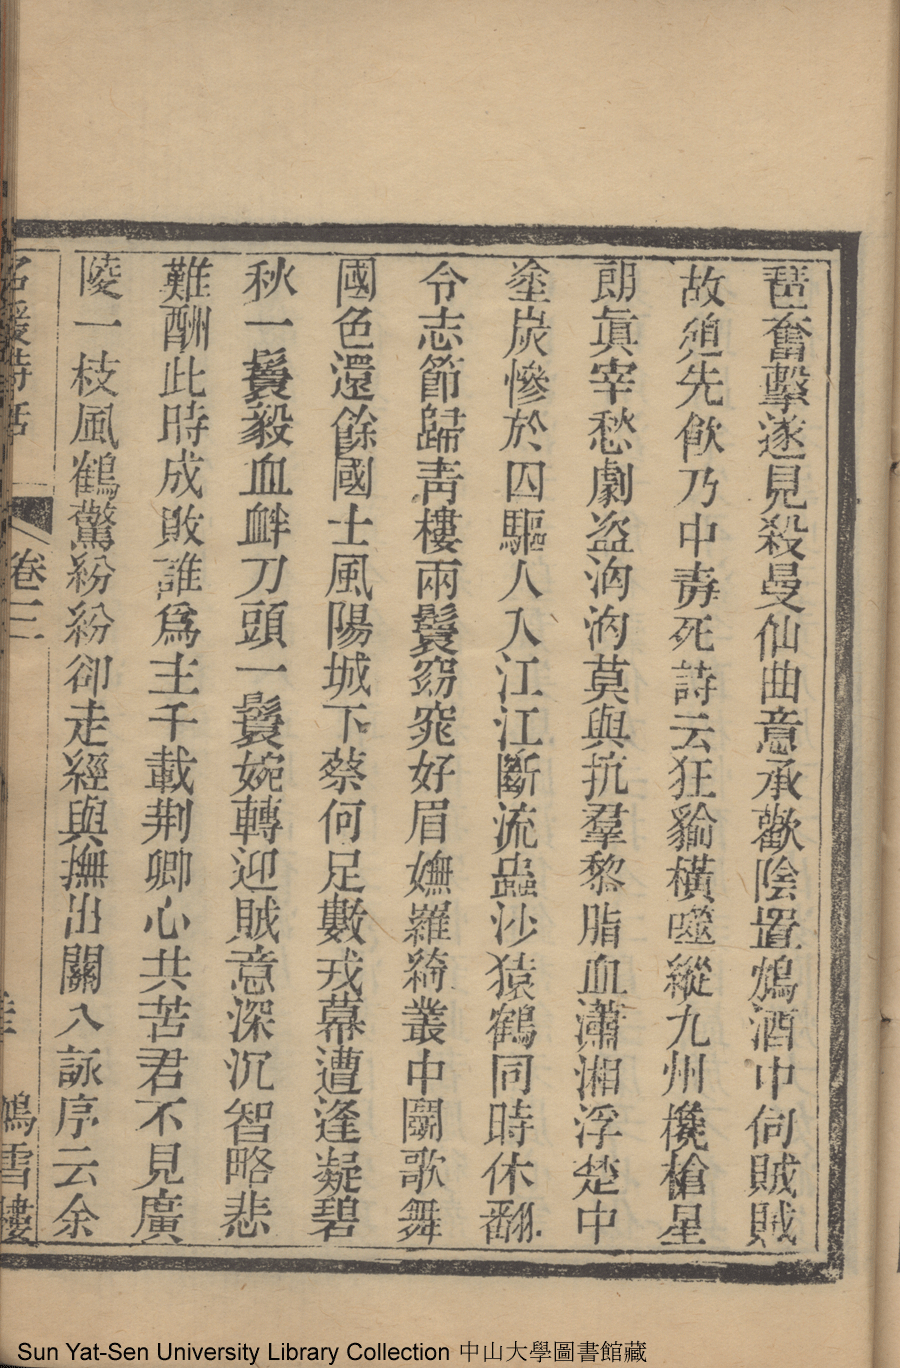 琶奮擊遂見殺曼仙曲意承歡陰置鴆酒中伺賊賊
故須先飲乃中毒死詩云狂貐橫噬縱九州欃槍星
朗眞宰愁劇盜洶洶莫與抗羣黎脂血瀟湘浮楚中
塗炭慘於囚驅人入江江斷流蟲沙猿鶴同時休翻
令志節歸青樓兩鬟窈窕好眉嫵羅綺叢中鬭歌舞
國色還餘國士風陽城下蔡何足數戎幕遭逢凝碧
秋一鬟毅血衅刀頭一鬟婉轉迎賊意深沉智略悲
難酬此時成敗誰爲主千載荆卿心共苦君不見廣
陵一枝風鶴驚紛紛卻走經與撫出關入詠序云余
名媛詩話
卷三
鴆雪樓
Sun Yat-Sen University Library Collection 中山大學圖書館藏